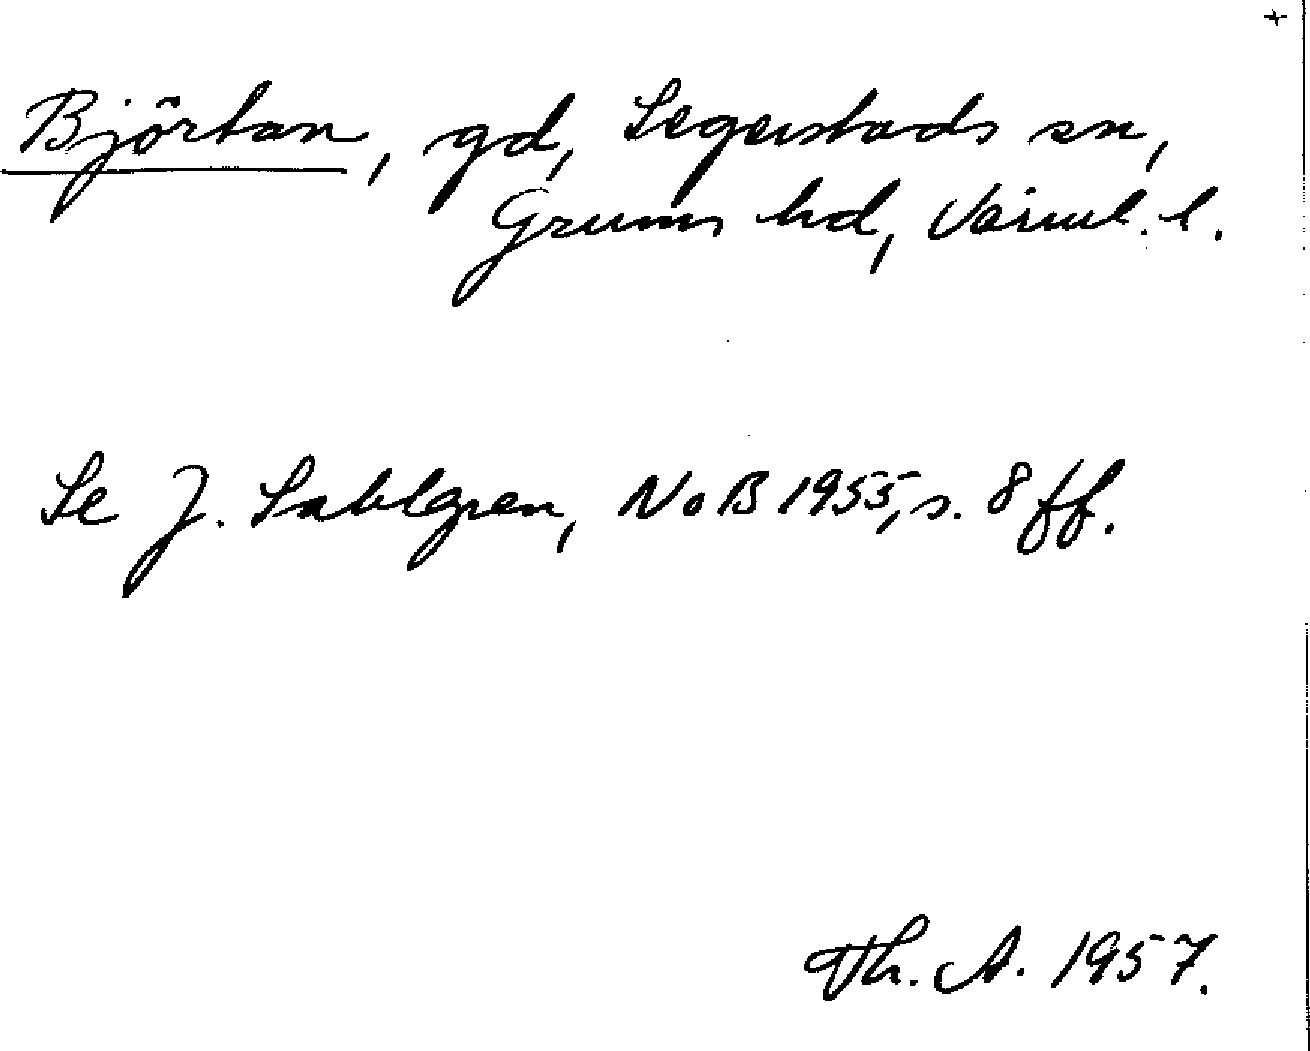 +
Björtan, gd, Segerstads sn,
Grums hd, Värml. l.
Se J. Sahlgren, NoB 1955, s. 8 ff.
Th. A. 1957.